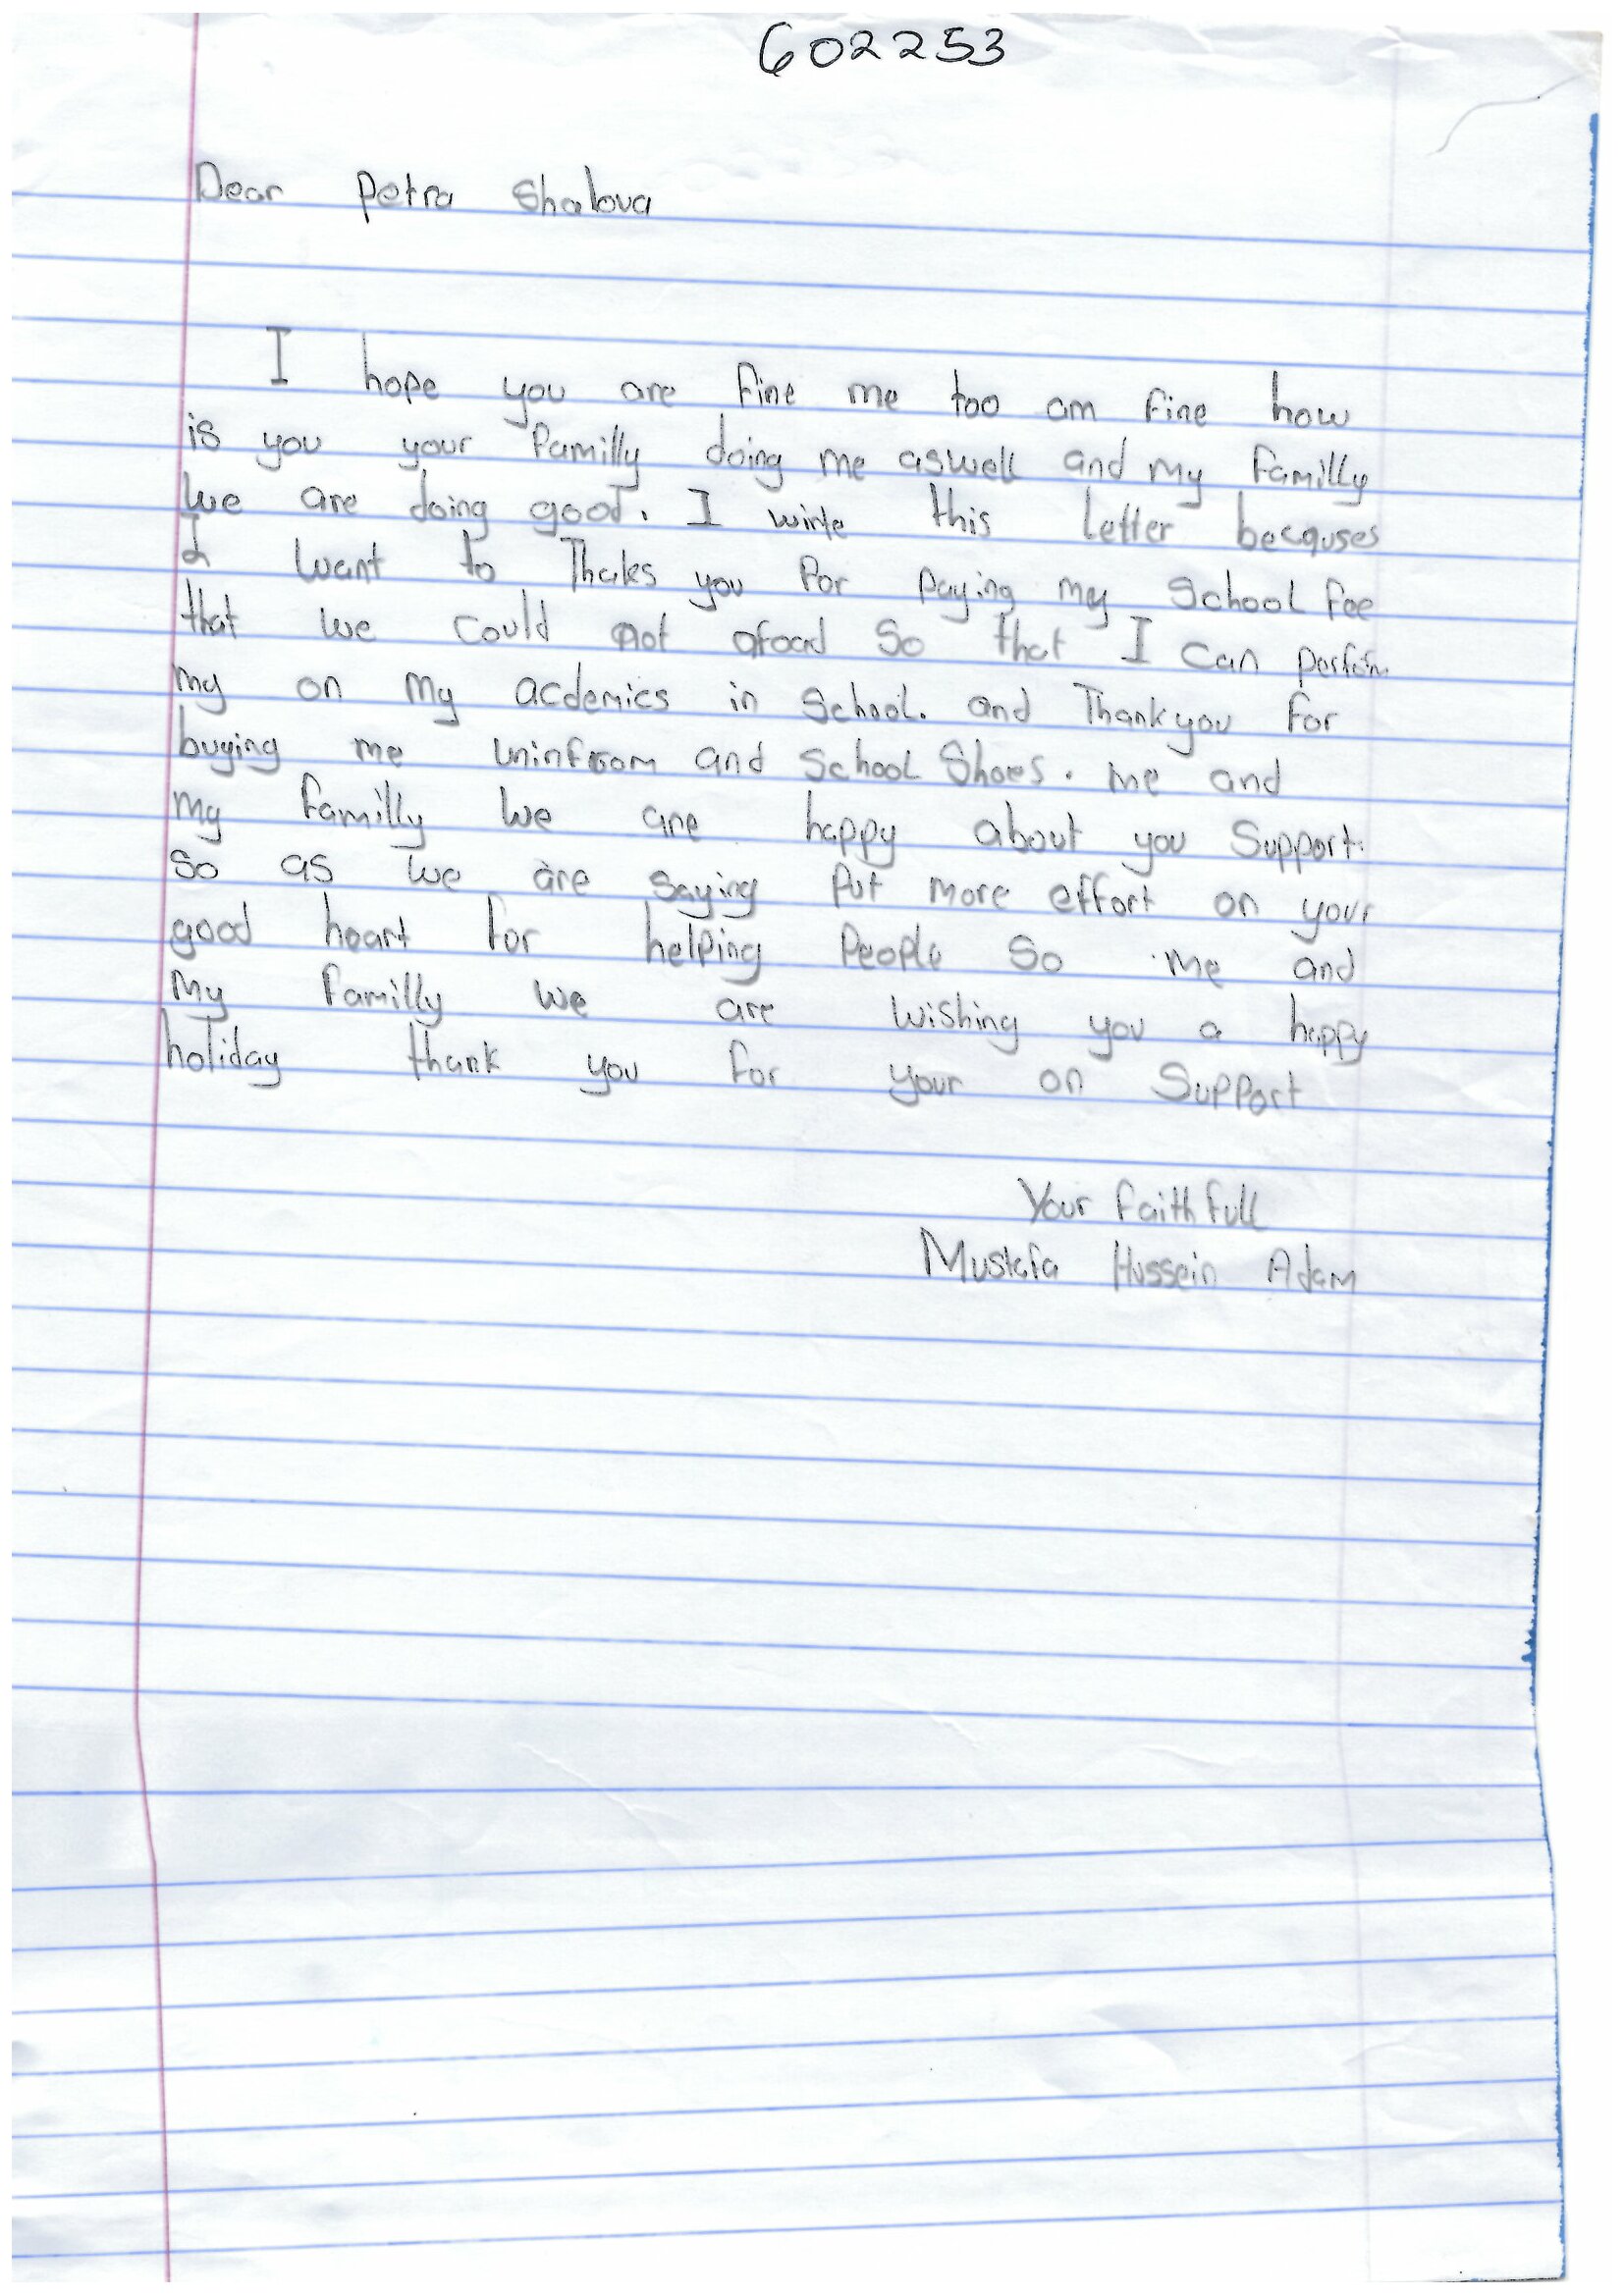 602253
Dear Petra Shalova
I hope you are fine me too am fine how
is you your familly doing me aswell and my familly
we are doing good. I wirte this letter becauses
I want to Thaks you for paying my school fee
that we could not afoad so that I can perfom
my on my acdemics in school. and Thank you for
buying me uninfroom and school shoes. me and
my familly we are happy about you support.
so as we are saying put more effort on your
good heart for helping people so me and
my familly we are wishing you a happy
holiday thank you for your on support
Your faith full
Mustafa Hussein Adam